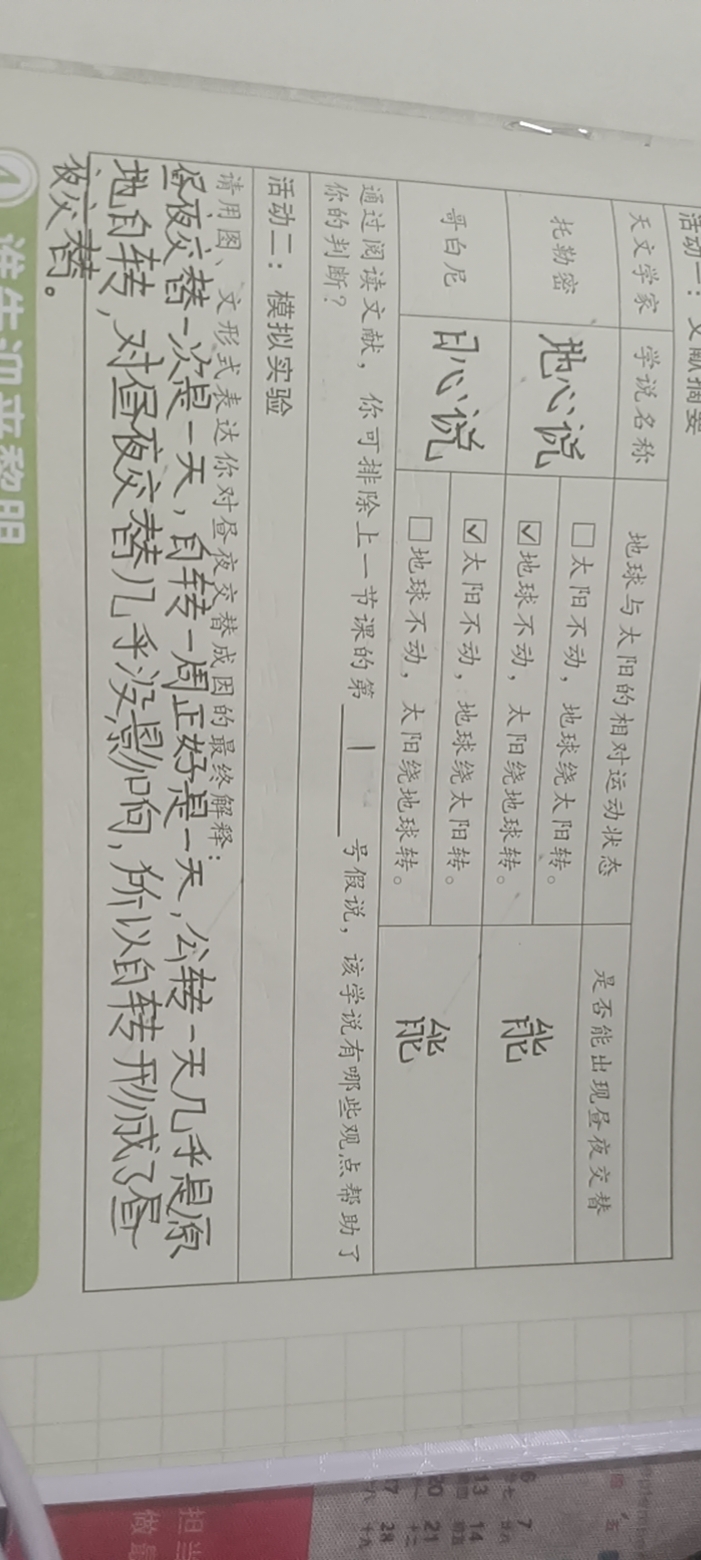 活动一：文献摘要
天文学家 学说名称 地球与太阳的相对运动状态 是否能出现昼夜交替
托勒密 地心说 □太阳不动，地球绕太阳转。 能
☑地球不动，太阳绕地球转。
哥白尼 日心说 ☑太阳不动，地球绕太阳转。 能
□地球不动，太阳绕地球转。
通过阅读文献，你可排除上一节课的第 1 号假说，该学说有哪些观点帮助了
你的判断？
活动二：模拟实验
请用图、文形式表达你对昼夜交替成因的最终解释：
昼夜交替一次是一天，自转一周正好是一天，公转一天几乎是原
地自转，对昼夜交替几乎没影响，所以自转形成了昼
夜交替。
4 谁先迎来黎明
6 7
13 14
20 21
28
担当